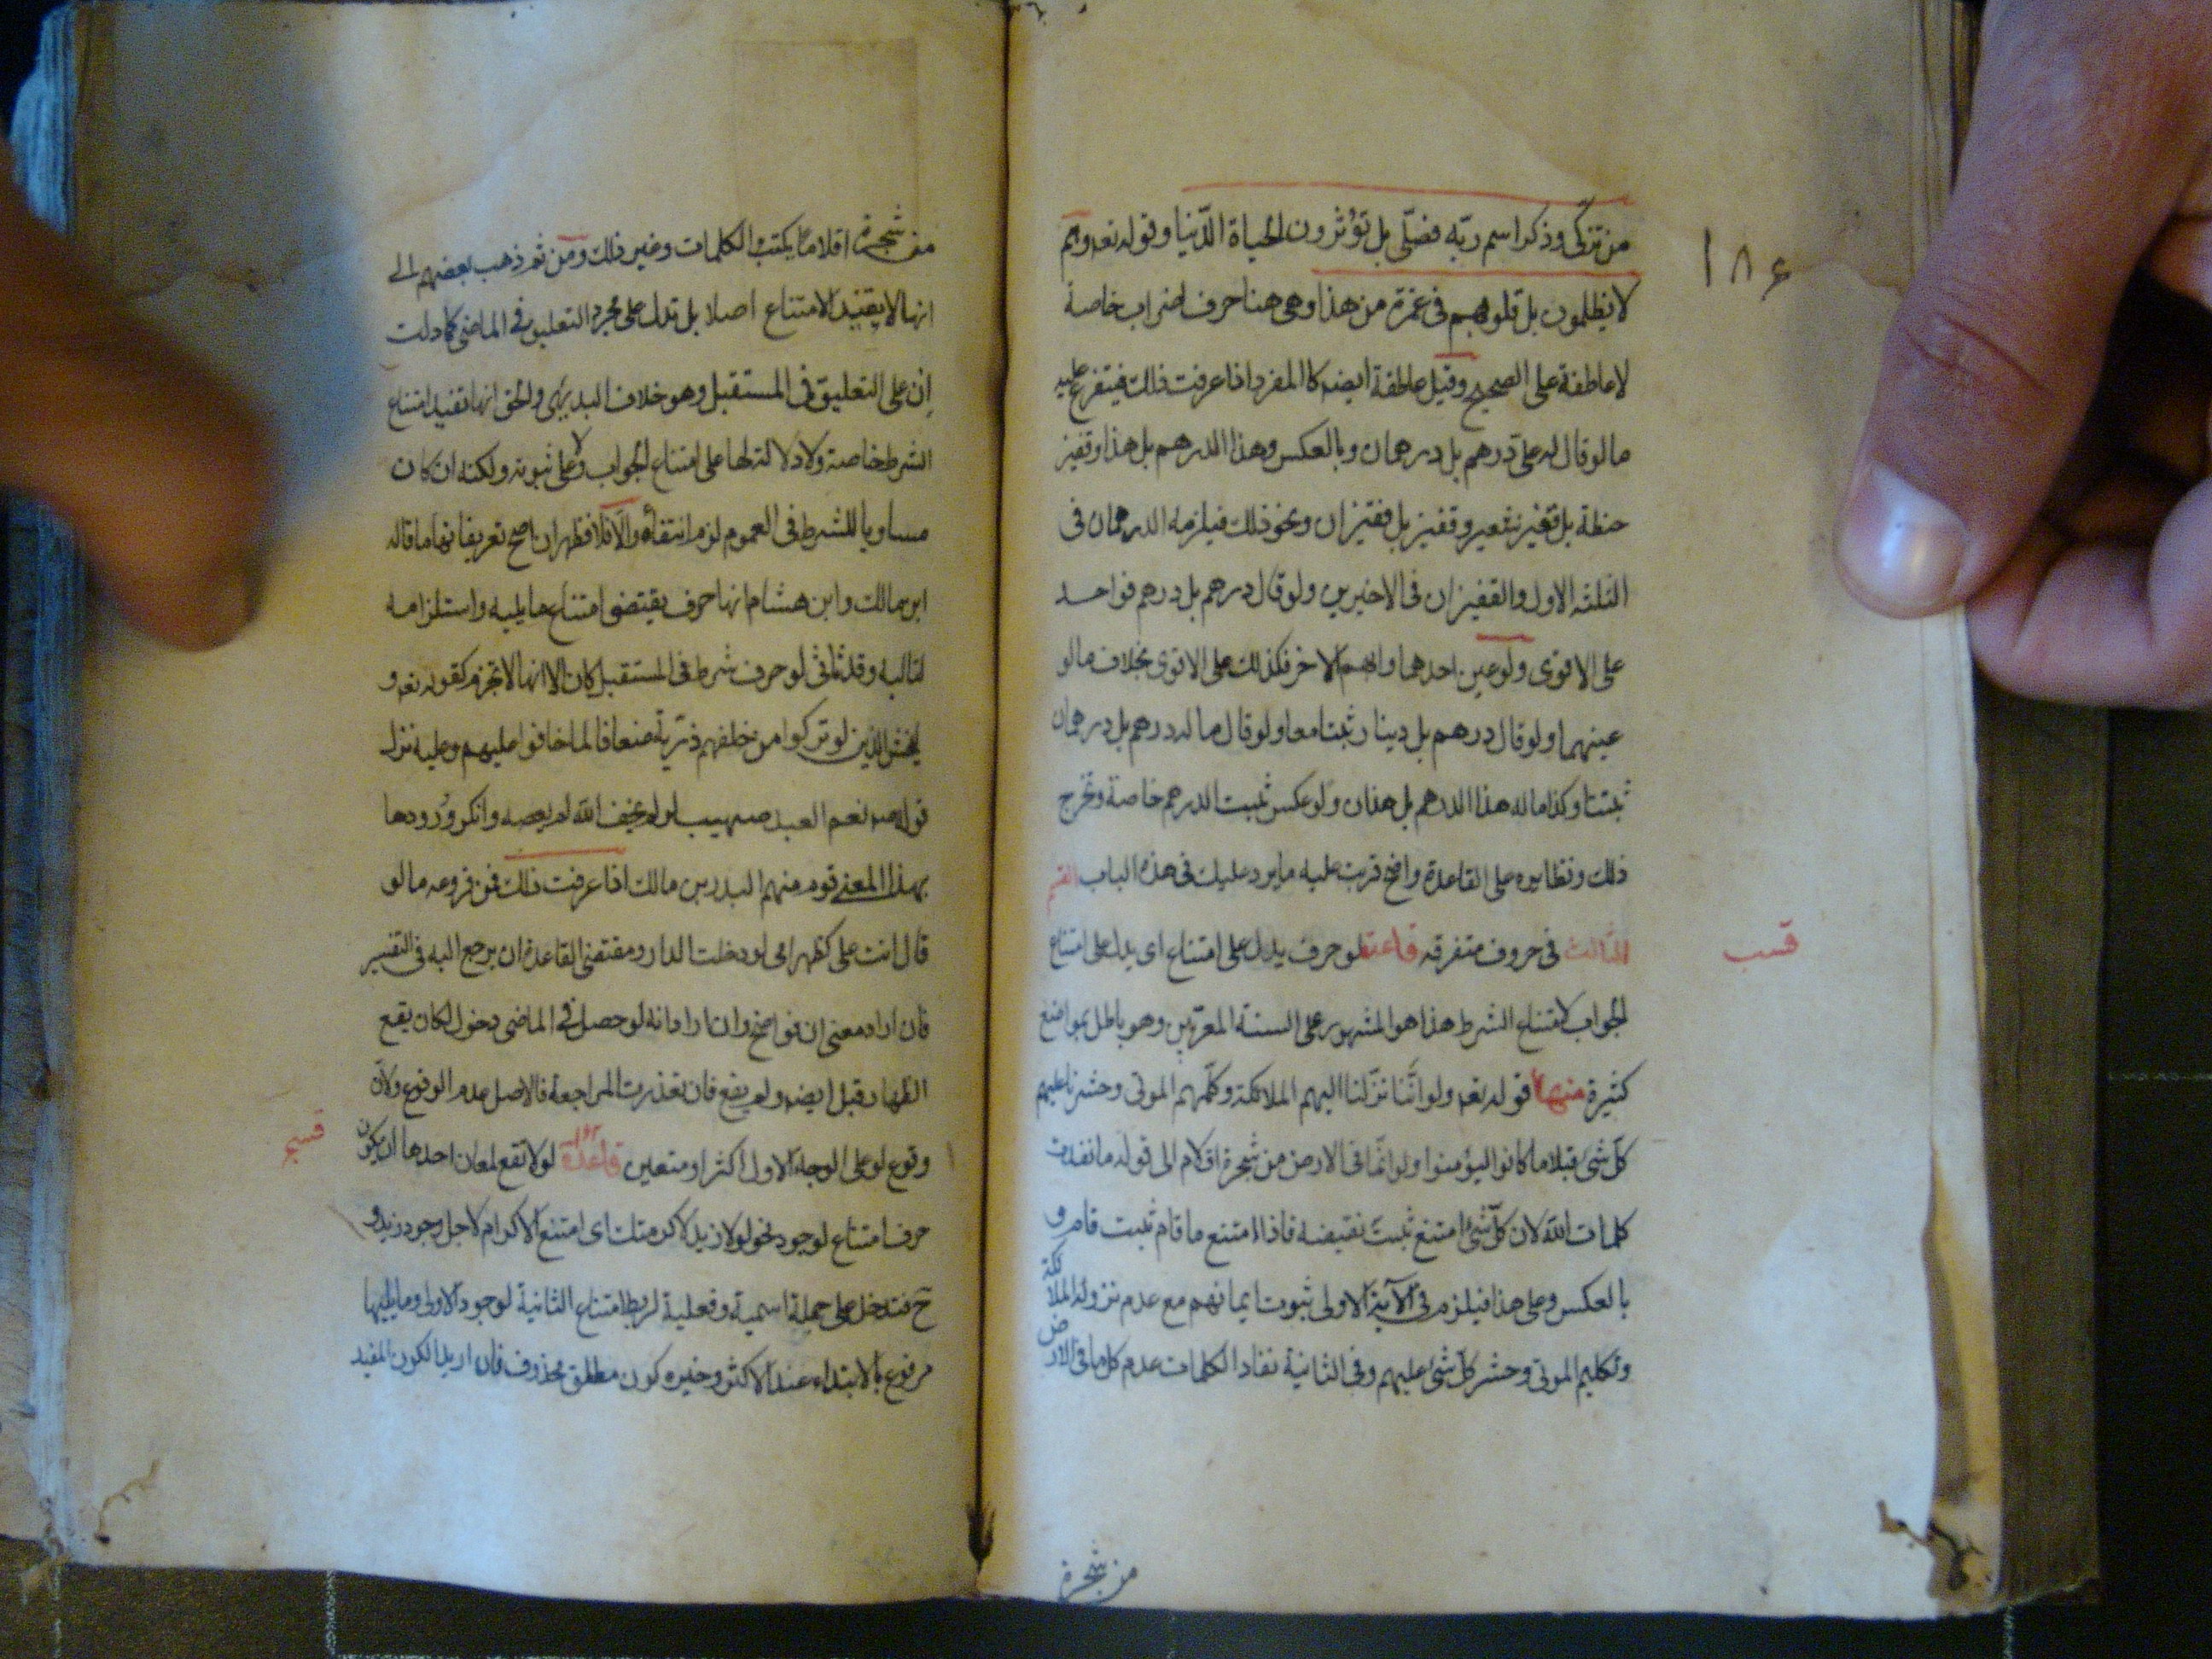 من تزكّى وذكر اسم ربّه فصلّى بل تؤثرون الحياة الدّنيا وقوله تعه وهم
١٨٤
لا يظلمون بل قلوبهم فى غمرة من هذا وهى هنا حرف اضراب خاصة
لا عاطفة على الصحيح وقيل عاطفة ايضه كالمفرد اذا عرفت ذلك فيتفرع عليه
ما لو قال له علىّ درهم بل درهمان وبالعكس وهذا الدرهم بل هذا وقفيز
حنطة بل قفيز شعير وقفيز بل قفيزان ونحو ذلك فيلزمه الدرهمان فى
الثلثة الاول والقفيزان فى الاخيرين ولو قال درهم بل درهم فواحد
على الاقوى ولو عين احدهما وابهم الاخر فكذلك على الاقوى بخلاف ما لو
عينهما ولو قال درهم بل دينار ثبتا معا ولو قال ماله درهم بل درهمان
ثبتتا وكذا ماله هذا الدرهم بل هذان ولو عكس ثبت الدرهم خاصة وتخرج
ذلك ونظايره على القاعدة واضح فرتب عليه ما يرد عليك فى هذه الباب القسم
الثالث فى حروف متفرقه قاعدة لو حرف يدل على امتناع اى يدل على امتناع
قسب
الجواب لامتناع الشرط هذا هو المشهور على السنة المعربين وهو باطل بمواضع
كثيرة منها قوله تعه ولو انّنا نزّلنا اليهم الملائكة وكلّمهم الموتى وحشرنا عليهم
كلّ شئ قبلا ما كانوا ليؤمنوا ولو انّما فى الارض من شجرة اقلام الى قوله ما نفدت
كلمات الله لان كلّ شئ امتنع ثبت نقيضه فاذا امتنع ما قام ثبت قام و
بالعكس وعلى هذا فيلزم فى الآية الاولى ثبوت ايمانهم مع عدم نزول الملائكة
وتكليم الموتى وحشر كلّ شئ عليهم وفى الثانية نفاد الكلمات عدم كل ما فى الارض
من شجرة
من شجرة اقلاما يكتب الكلمات وغير ذلك ومن ثم ذهب بعضهم الى
انها لا يفيد الامتناع اصلا بل تدل على مجرد التعليق فى الماضى كما دلت
إن على التعليق فى المستقبل وهو خلاف البديهى والحق انها تفيد امتناع
الشرط خاصة ولا دلالة لها على امتناع الجواب ولا على ثبوته ولكنه ان كان
مساويا للشرط فى العموم لزم انتفاؤه والّا فلا فظهر ان اصح تعريفاتها ما قاله
ابن مالك وابن هشام انها حرف يقتضى امتناع ما يليه واستلزامه
لتاليه وقد تاتى لو حرف شرط فى المستقبل كان الا انها لا تجزم كقوله تعه و
ليخش الذين لو تركوا من خلفهم ذريّة ضعافا لما خافوا عليهم وعليه نزل
قوله صه نعم العبد صهيب لو لم يخف الله لم يعصه وانكر ورودها
بهذا المعنى قوم منهم البدر بن مالك اذا عرفت ذلك فمن فروعه ما لو
قال انت على كظهر امى لو دخلت الدار ومقتضى القاعدة ان يرجع اليه فى التفسير
فان اراد معنى ان فواضح وان اراد انه لو حصل فى الماضى دخول لكان يقع
الظهار قبل ايضه ولم يقع فان تعذرت المراجعة فالاصل عدم الوقوع ولان
وقوع لو على الوجه الاول اكثر او متعين قاعدة لولا تقع لمعان احدها ان يكون
قسج
حرف امتناع لوجود نحو لولا زيد لاكرمتك اى امتنع الاكرام لاجل وجود زيد و
ح فتدخل على جملة اسمية وفعلية لربط امتناع الثانية لوجود الاولى وما يليها
مرفوع بالابتداء عند الاكثر وخبره كون مطلق محذوف فان اريد الكون المقيد